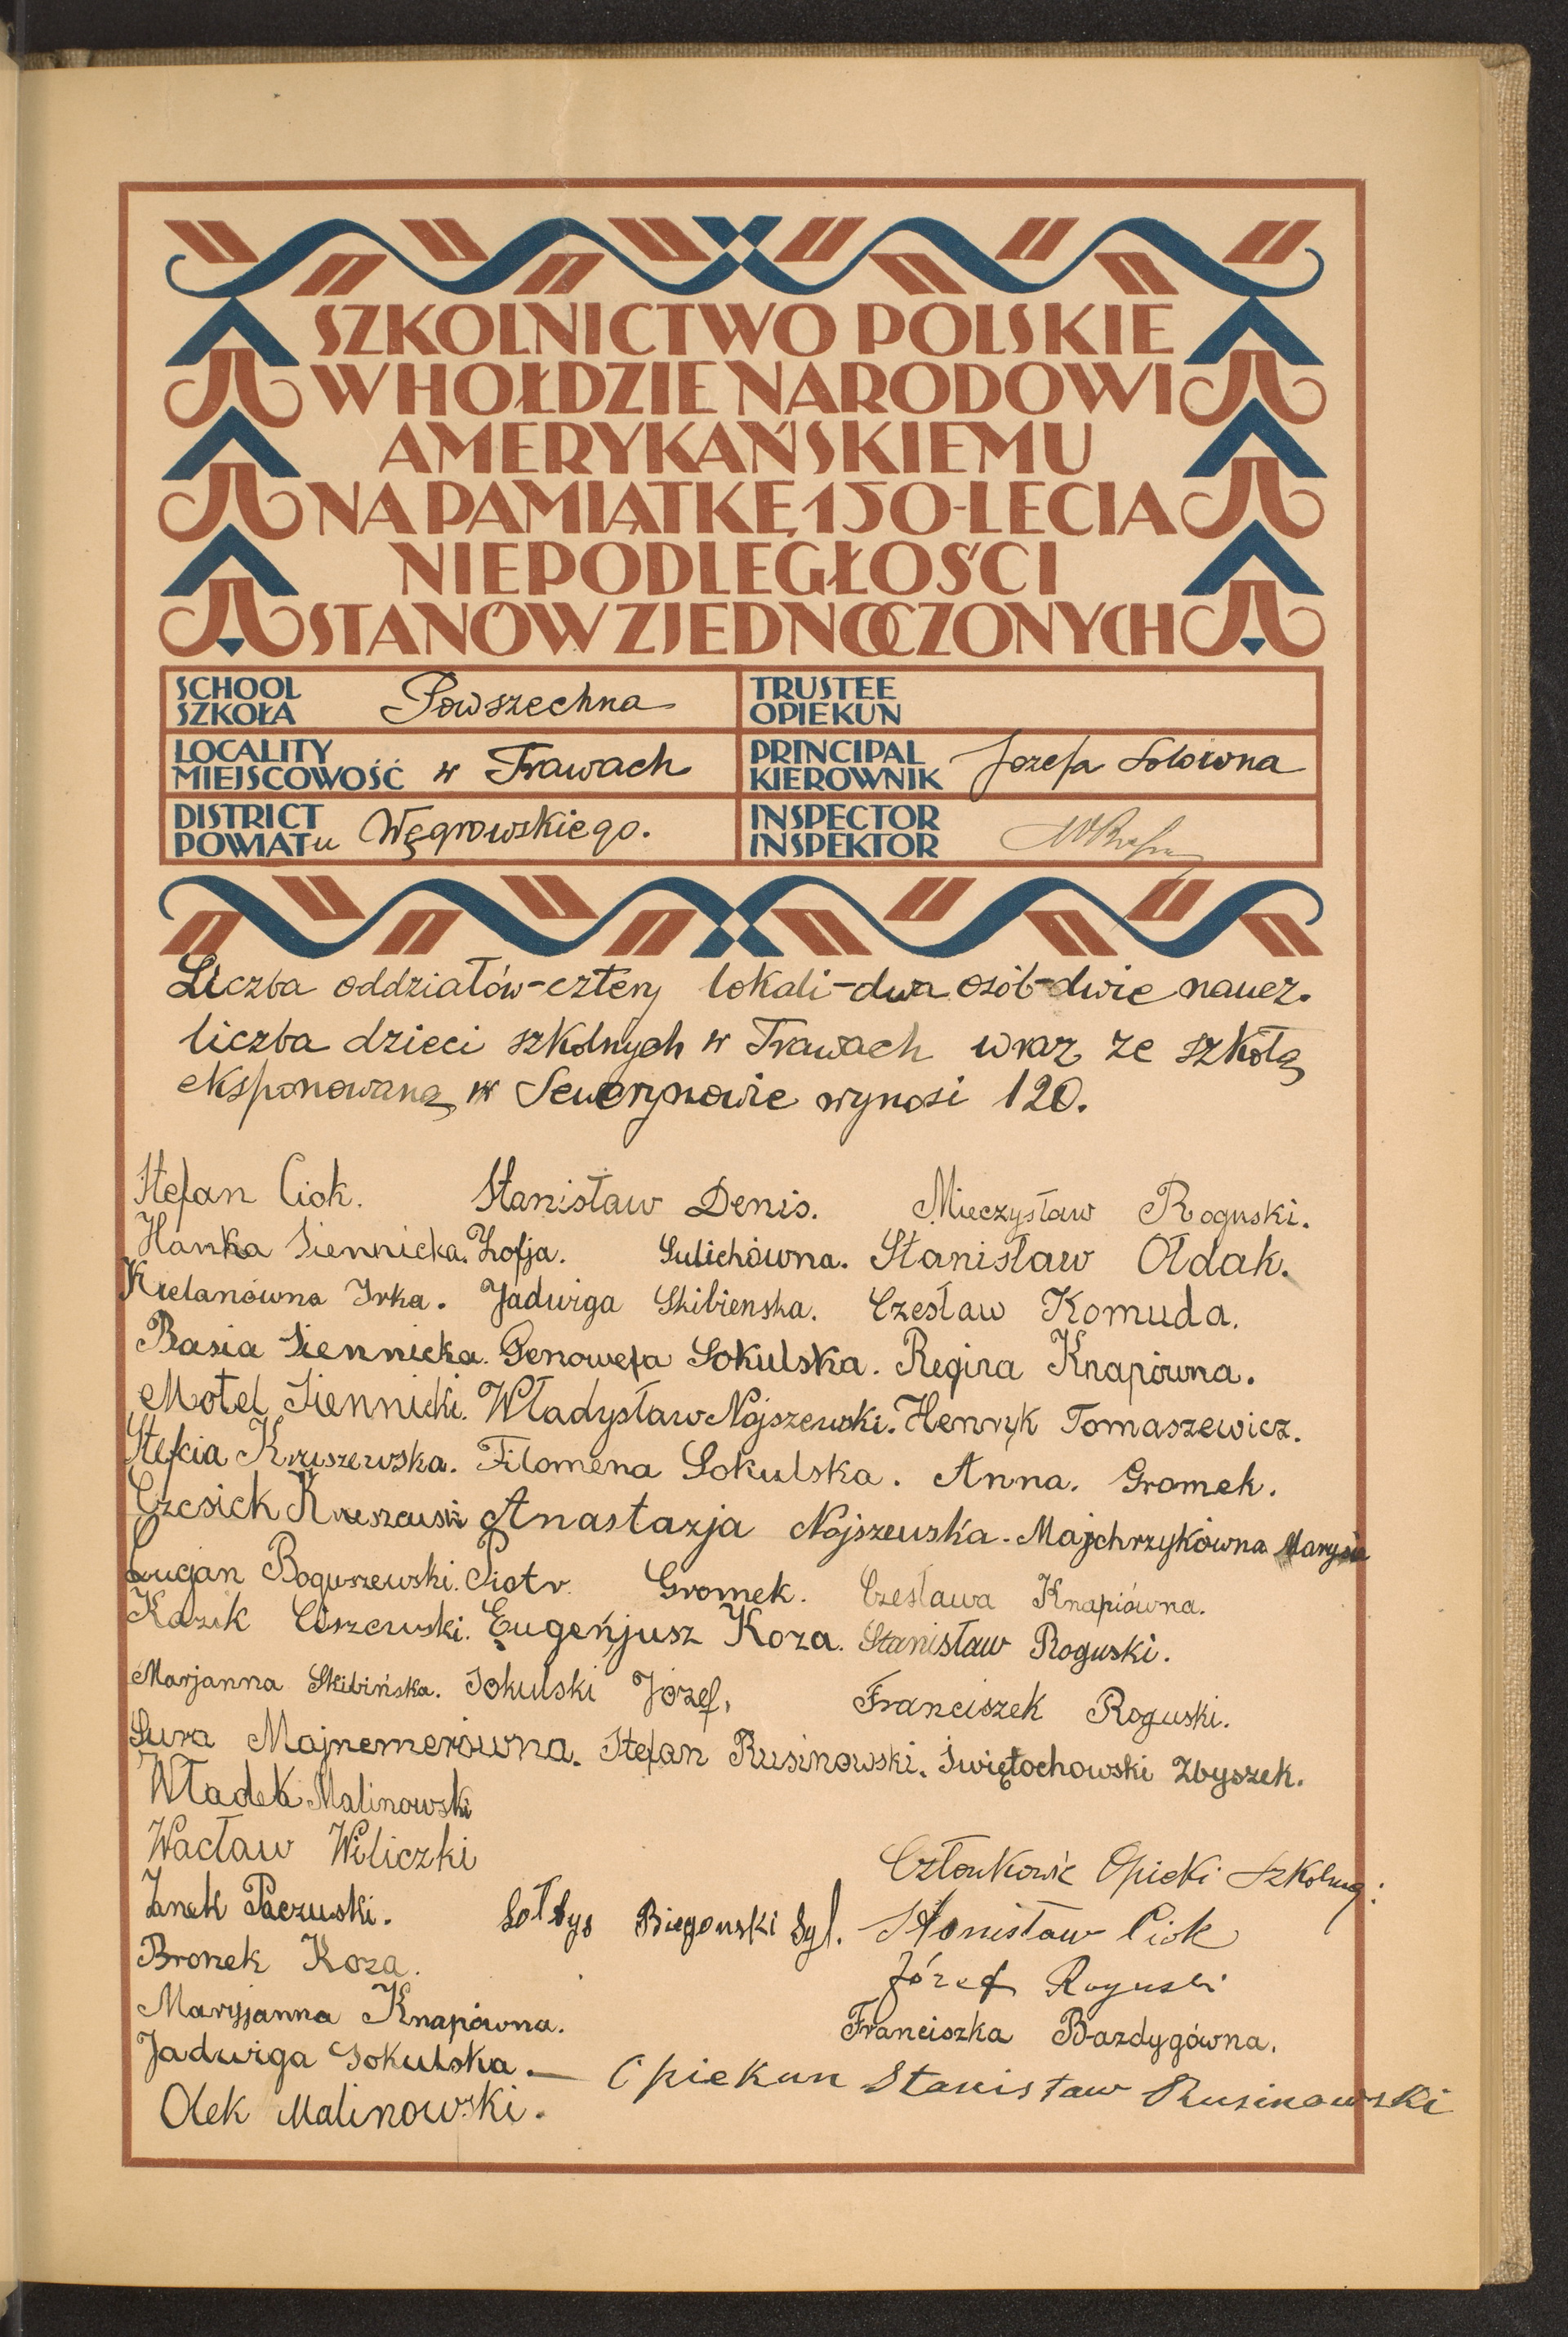 SZKOLNICTWO POLSKIE
W HOŁDZIE NARODOWI
AMERYKAŃSKIEMU
NA PAMIĄTKĘ 150-LECIA
NIEPODLEGŁOŚCI
STANÓW ZJEDNOCZONYCH
SCHOOL
SZKOŁA Powszechna
TRUSTEE
OPIEKUN
LOCALITY
MIEJSCOWOŚĆ w Trawach
PRINCIPAL
KIEROWNIK Józefa
DISTRICT
POWIATu Węgrowskiego.
INSPECTOR
INSPEKTOR
Liczba oddziałów-cztery lokali-dwa osób-dwie naucz.
liczba dzieci szkolnych w Trawach wraz ze szkołą
eksponowaną w Sewerynowie wynosi 120.
Stefan Ciok. Stanisław Denis. Mieczysław Roguski.
Hanka Siennicka. Zofja. Sulichówna. Stanisław Ołdak.
Kielanówna Irka. Jadwiga Skibienska. Czesław Komuda.
Basia Siennicka. Genowefa Sokulska. Regina Knapiówna.
Motel Siennicki. Władysław Nojszewski. Henryk Tomaszewicz.
Stefcia Kruszewska. Filomena Sokulska. Anna. Gromek.
Czesiek Kruszewski Anastazja Nojszewska. Majchrzykówna Marysia
Lucjan Boguszewski. Piotr. Gromek. Czesława Knapiówna.
Kazik Ciszewski. Eugenjusz Koza. Stanisław Roguski.
Marjanna Skibińska. Sokulski Józef. Franciszek Roguski.
Sura Majnemerówna. Stefan Rusinowski. Świętochowski Zbyszek.
Władek Malinowski
Wacław Wiliczki
Członkowie Opieki Szkolnej:
Janek Paczuski. Sołtys Biegonski Syl. Stanisław Ciok
Bronek Koza. Józef Roguski
Maryjanna Knapówna. Franciszka Bazdygówna.
Jadwiga Sokulska. — Opiekun Stanisław Rusinowski
Olek Malinowski.